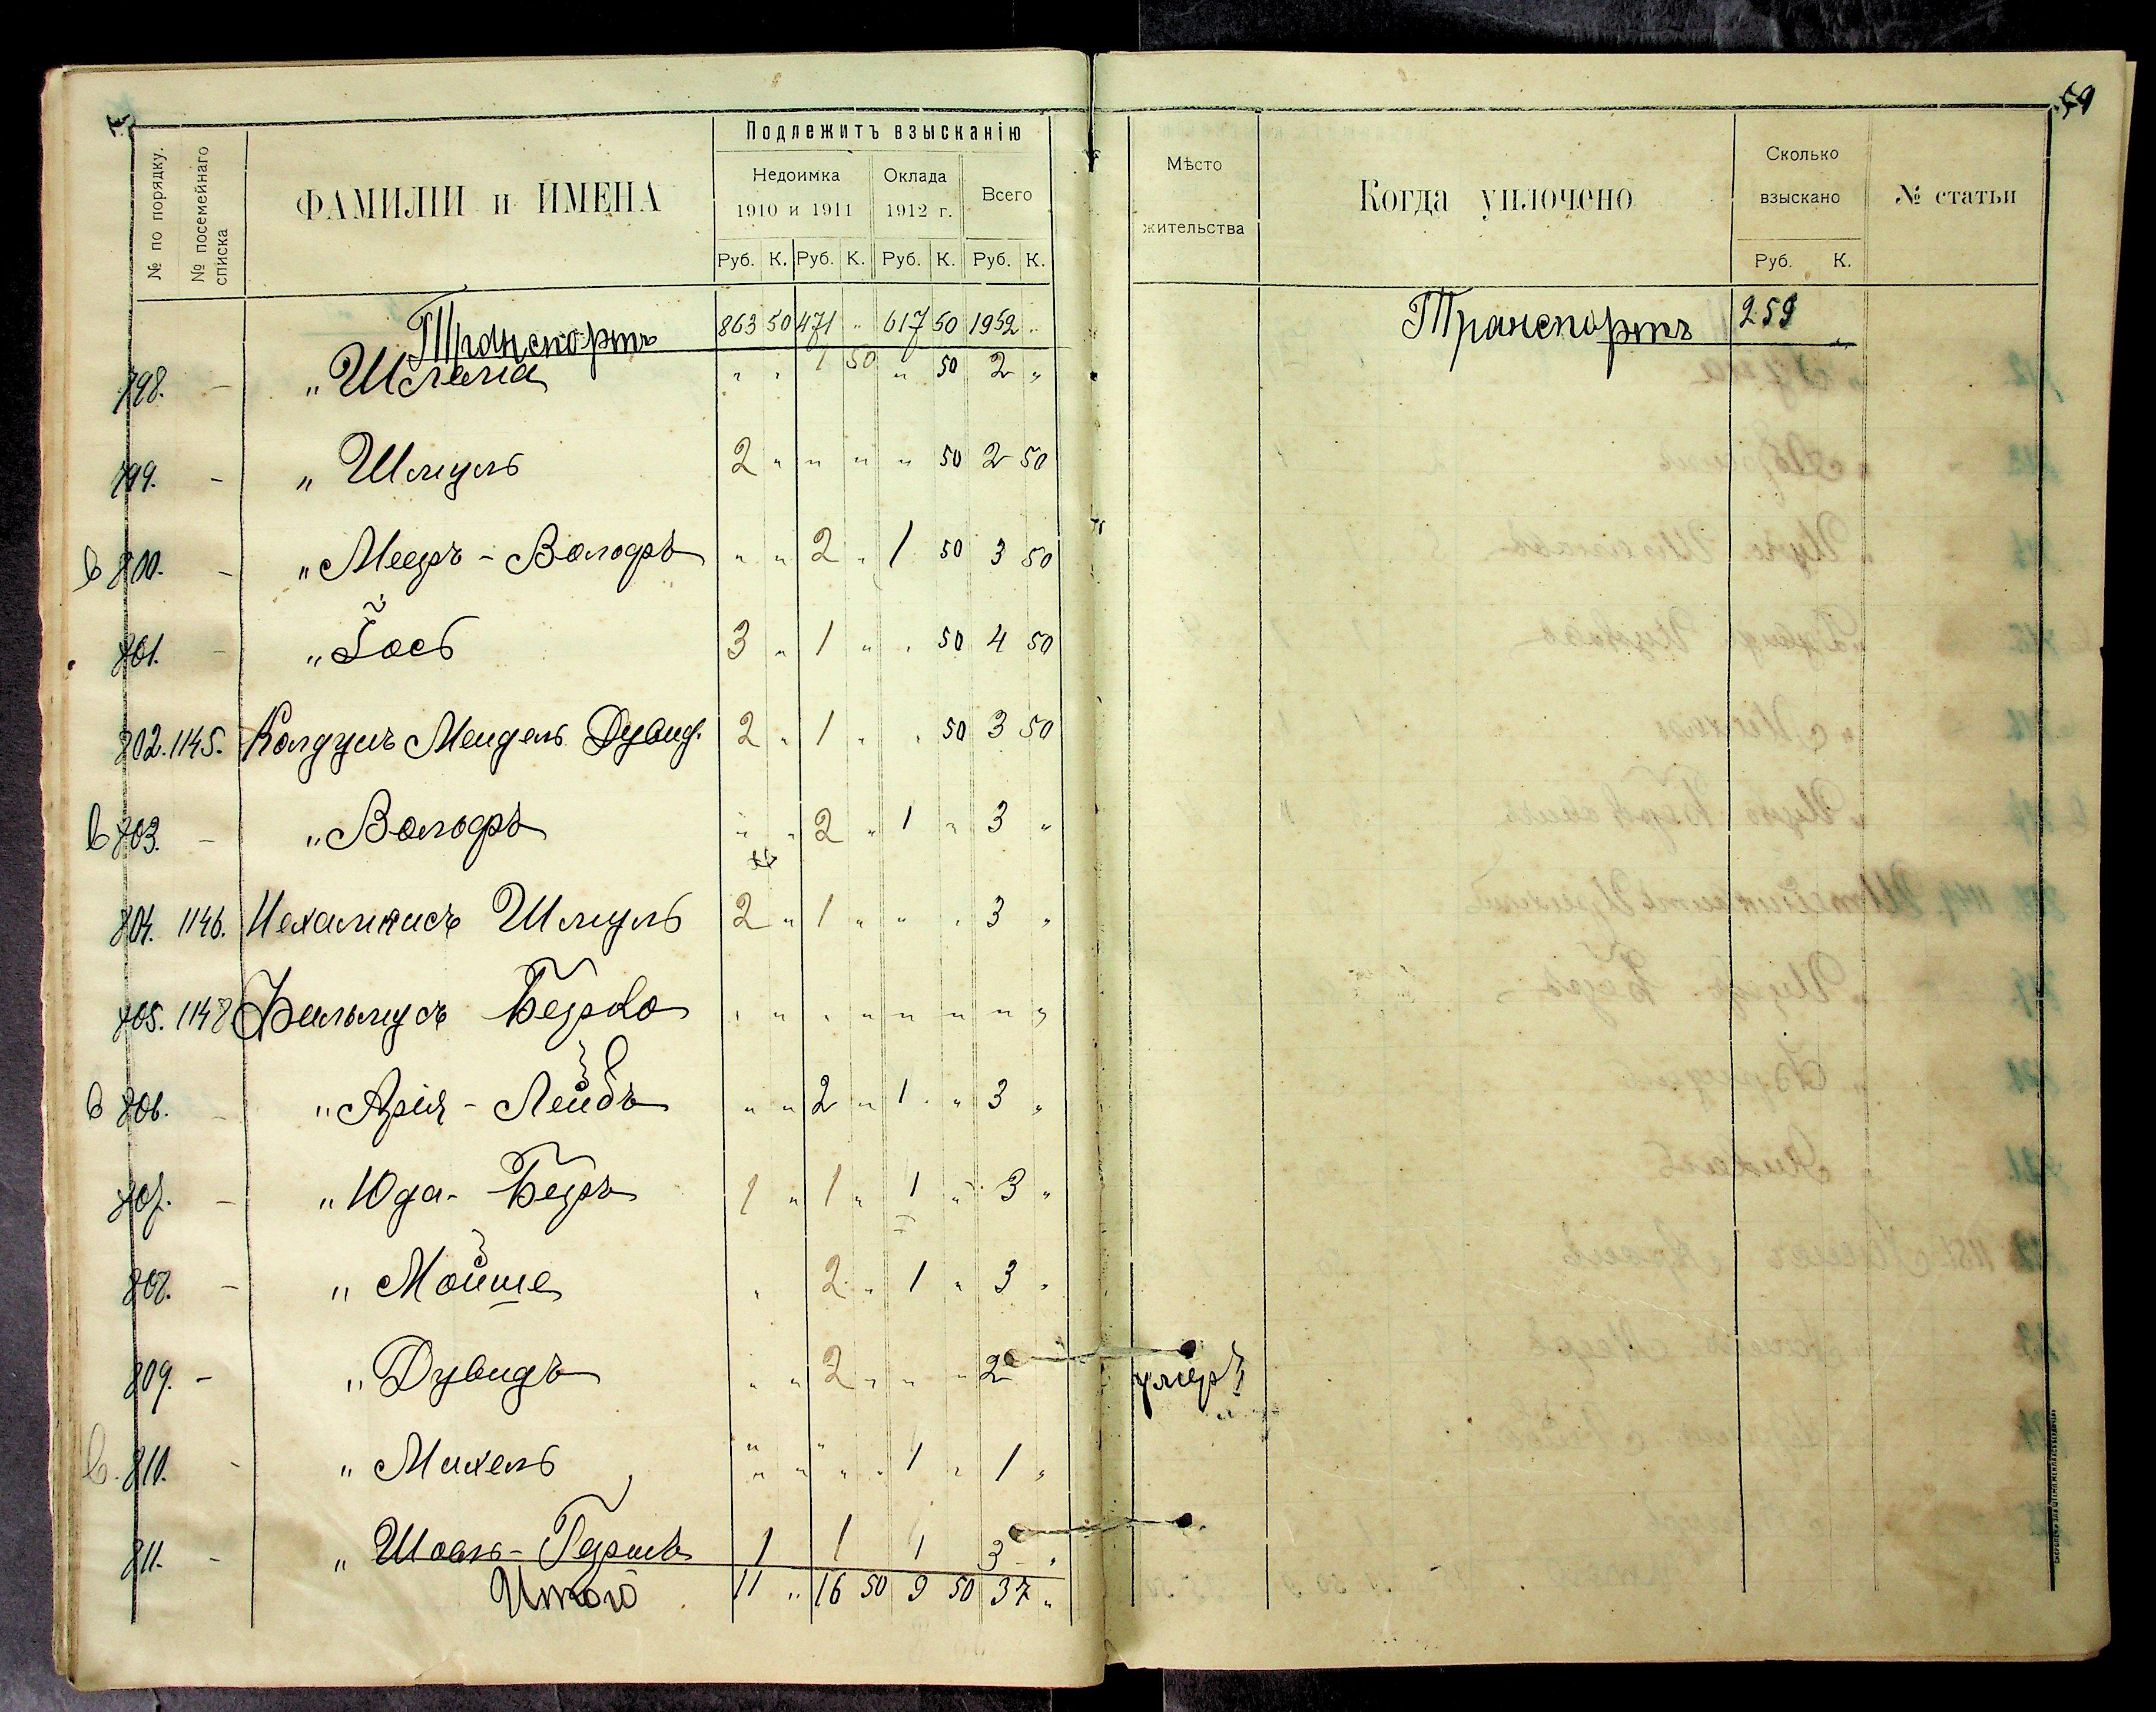 59
№ по порядку.
№ посемейнаго списка
ФАМИЛІИ и ИМЕНА
Подлежитъ взысканію
Недоимка
1910 и 1911
Оклада
1912 г.
Всего
Руб. К. Руб. К. Руб. К. Руб. К.
Мѣсто
жительства
Когда уплочено
Сколько
взыскано
Руб. К.
№ статьи
Транспортъ 863 50 471 " 617 50 1952 "
Транспортъ 259
798. - " Шлема " " 1 50 " 50 2 "
799. - " Шмуль 2 " " " " 50 2 50
в 800. - " Мееръ - Вольфъ " " 2 " 1 50 3 50
801. - " Іось 3 " 1 " " 50 4 50
802. 1145. Колдунъ Мендель Дувид. 2 " 1 " " 50 3 50
в 803. - " Вольфъ " " 2 " 1 " 3 "
804. 1146. Шмуль 2 " 1 " " " 3 "
805. 1148 Берко " " " " " " " "
в 806. - " Арія - Лейбъ " " 2 " 1 " " 3 "
807. - " Юда - Беръ 1 " 1 " 1 " 3 "
808. - " Мойше " 2 " 1 " 3 "
809. - " Дувидъ " " 2 " " " 2
умеръ
в. 810. - " Михель " " " " 1 " 1 "
811. - " Шоель - Гершъ 1 1 1 3 "
Итого 11 " 16 50 9 50 37 "